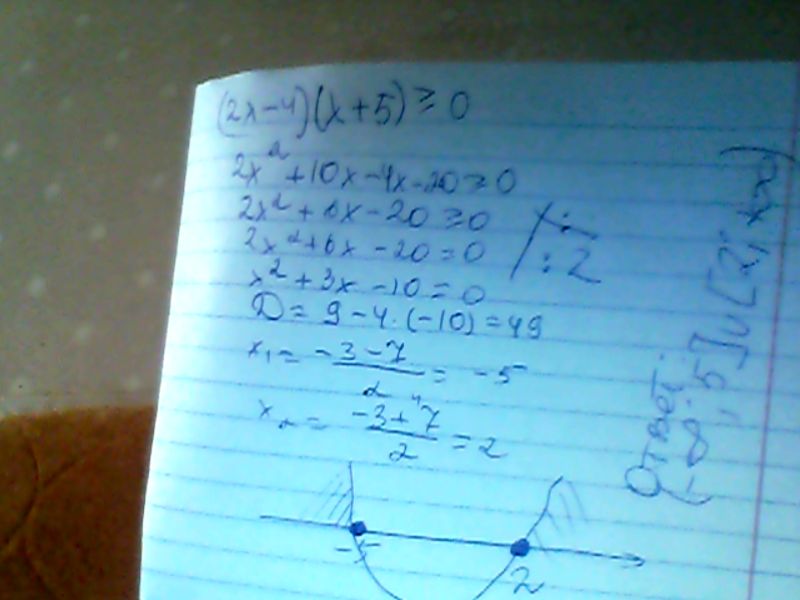 (2x-4)(x+5)≥0
2x²+10x-4x-20≥0
2x²+6x-20≥0
2x²+6x-20=0 / :2
x²+3x-10=0
D=9-4·(-10)=49
x₁=(-3-7)/2=-5
x₂=(-3+7)/2=2
-5 2
Ответ:
(-∞;5]∪[2;+∞)